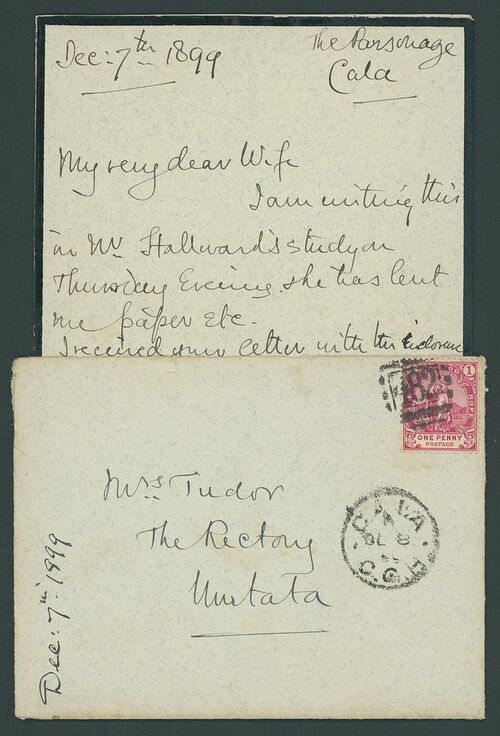 Dec: 7th 1899
The Parsonage
Cala
My very dear Wife
I am writing this
in Mr Hallward's study on
Thursday Evening. she has lent
me paper etc.
I received your letter with the inclosure
1
HOPE
ONE PENNY
POSTAGE
CALA
DE 8
C.G.H
Mrs Tudor
The Rectory
Umtata
Dec: 7th 1899